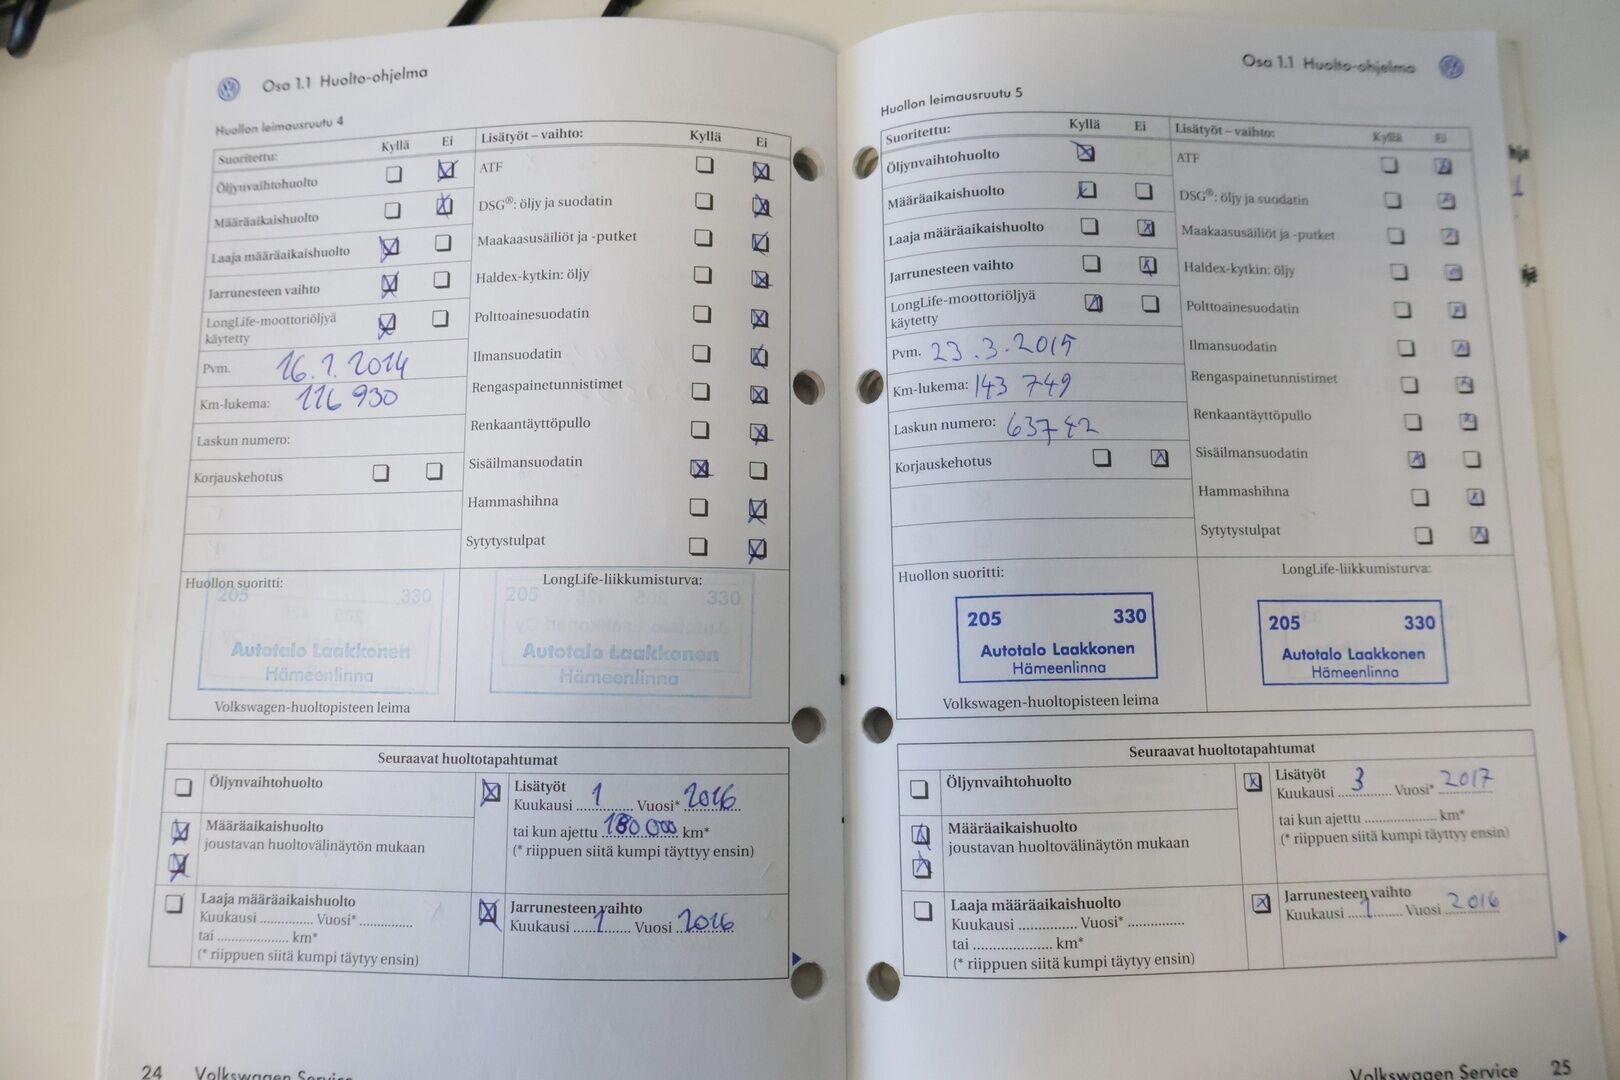 Osa 1.1 Huolto-ohjelma
Huollon leimausruutu 4
Suoritettu: Kyllä Ei
Öljynvaihtohuolto
Määräaikaishuolto
Laaja määräaikaishuolto
Jarrunesteen vaihto
LongLife-moottoriöljyä
käytetty
Pvm. 16.1.2014
Km-lukema: 116 930
Laskun numero:
Korjauskehotus
Lisätyöt – vaihto: Kyllä Ei
ATF
DSG®: öljy ja suodatin
Maakaasusäiliöt ja -putket
Haldex-kytkin: öljy
Polttoainesuodatin
Ilmansuodatin
Rengaspainetunnistimet
Renkaantäyttöpullo
Sisäilmansuodatin
Hammashihna
Sytytystulpat
Huollon suoritti:
205 330
Autotalo Laakkonen
Hämeenlinna
Volkswagen-huoltopisteen leima
LongLife-liikkumisturva:
205 330
Autotalo Laakkonen
Hämeenlinna
Seuraavat huoltotapahtumat
Öljynvaihtohuolto
Määräaikaishuolto
joustavan huoltovälinäytön mukaan
Laaja määräaikaishuolto
Kuukausi .............. Vuosi* ..............
tai .................... km*
(* riippuen siitä kumpi täytyy ensin)
Lisätyöt
Kuukasi 1 Vuosi* 2016
tai kun ajettu 180 000 km*
(* riippuen siitä kumpi täyttyy ensin)
Jarrunesteen vaihto
Kuukausi 1 Vuosi 2016
24 Volkswagen Service
Osa 1.1 Huolto-ohjelma
Huollon leimausruutu 5
Suoritettu: Kyllä Ei
Öljynvaihtohuolto
Määräaikaishuolto
Laaja määräaikaishuolto
Jarrunesteen vaihto
LongLife-moottoriöljyä
käytetty
Pvm. 23.3.2015
Km-lukema: 143 749
Laskun numero: 63742
Korjauskehotus
Lisätyöt – vaihto: Kyllä Ei
ATF
DSG®: öljy ja suodatin
Maakaasusäiliöt ja -putket
Haldex-kytkin: öljy
Polttoainesuodatin
Ilmansuodatin
Rengaspainetunnistimet
Renkaantäyttöpullo
Sisäilmansuodatin
Hammashihna
Sytytystulpat
Huollon suoritti:
205 330
Autotalo Laakkonen
Hämeenlinna
Volkswagen-huoltopisteen leima
LongLife-liikkumisturva:
205 330
Autotalo Laakkonen
Hämeenlinna
Seuraavat huoltotapahtumat
Öljynvaihtohuolto
Määräaikaishuolto
joustavan huoltovälinäytön mukaan
Laaja määräaikaishuolto
Kuukausi .............. Vuosi* ..............
tai .................... km*
(* riippuen siitä kumpi täytyy ensin)
Lisätyöt
Kuukausi 3 Vuosi* 2017
tai kun ajettu .................... km*
(* riippuen siitä kumpi täyttyy ensin)
Jarrunesteen vaihto
Kuukausi 1 Vuosi 2016
Volkswagen Service 25